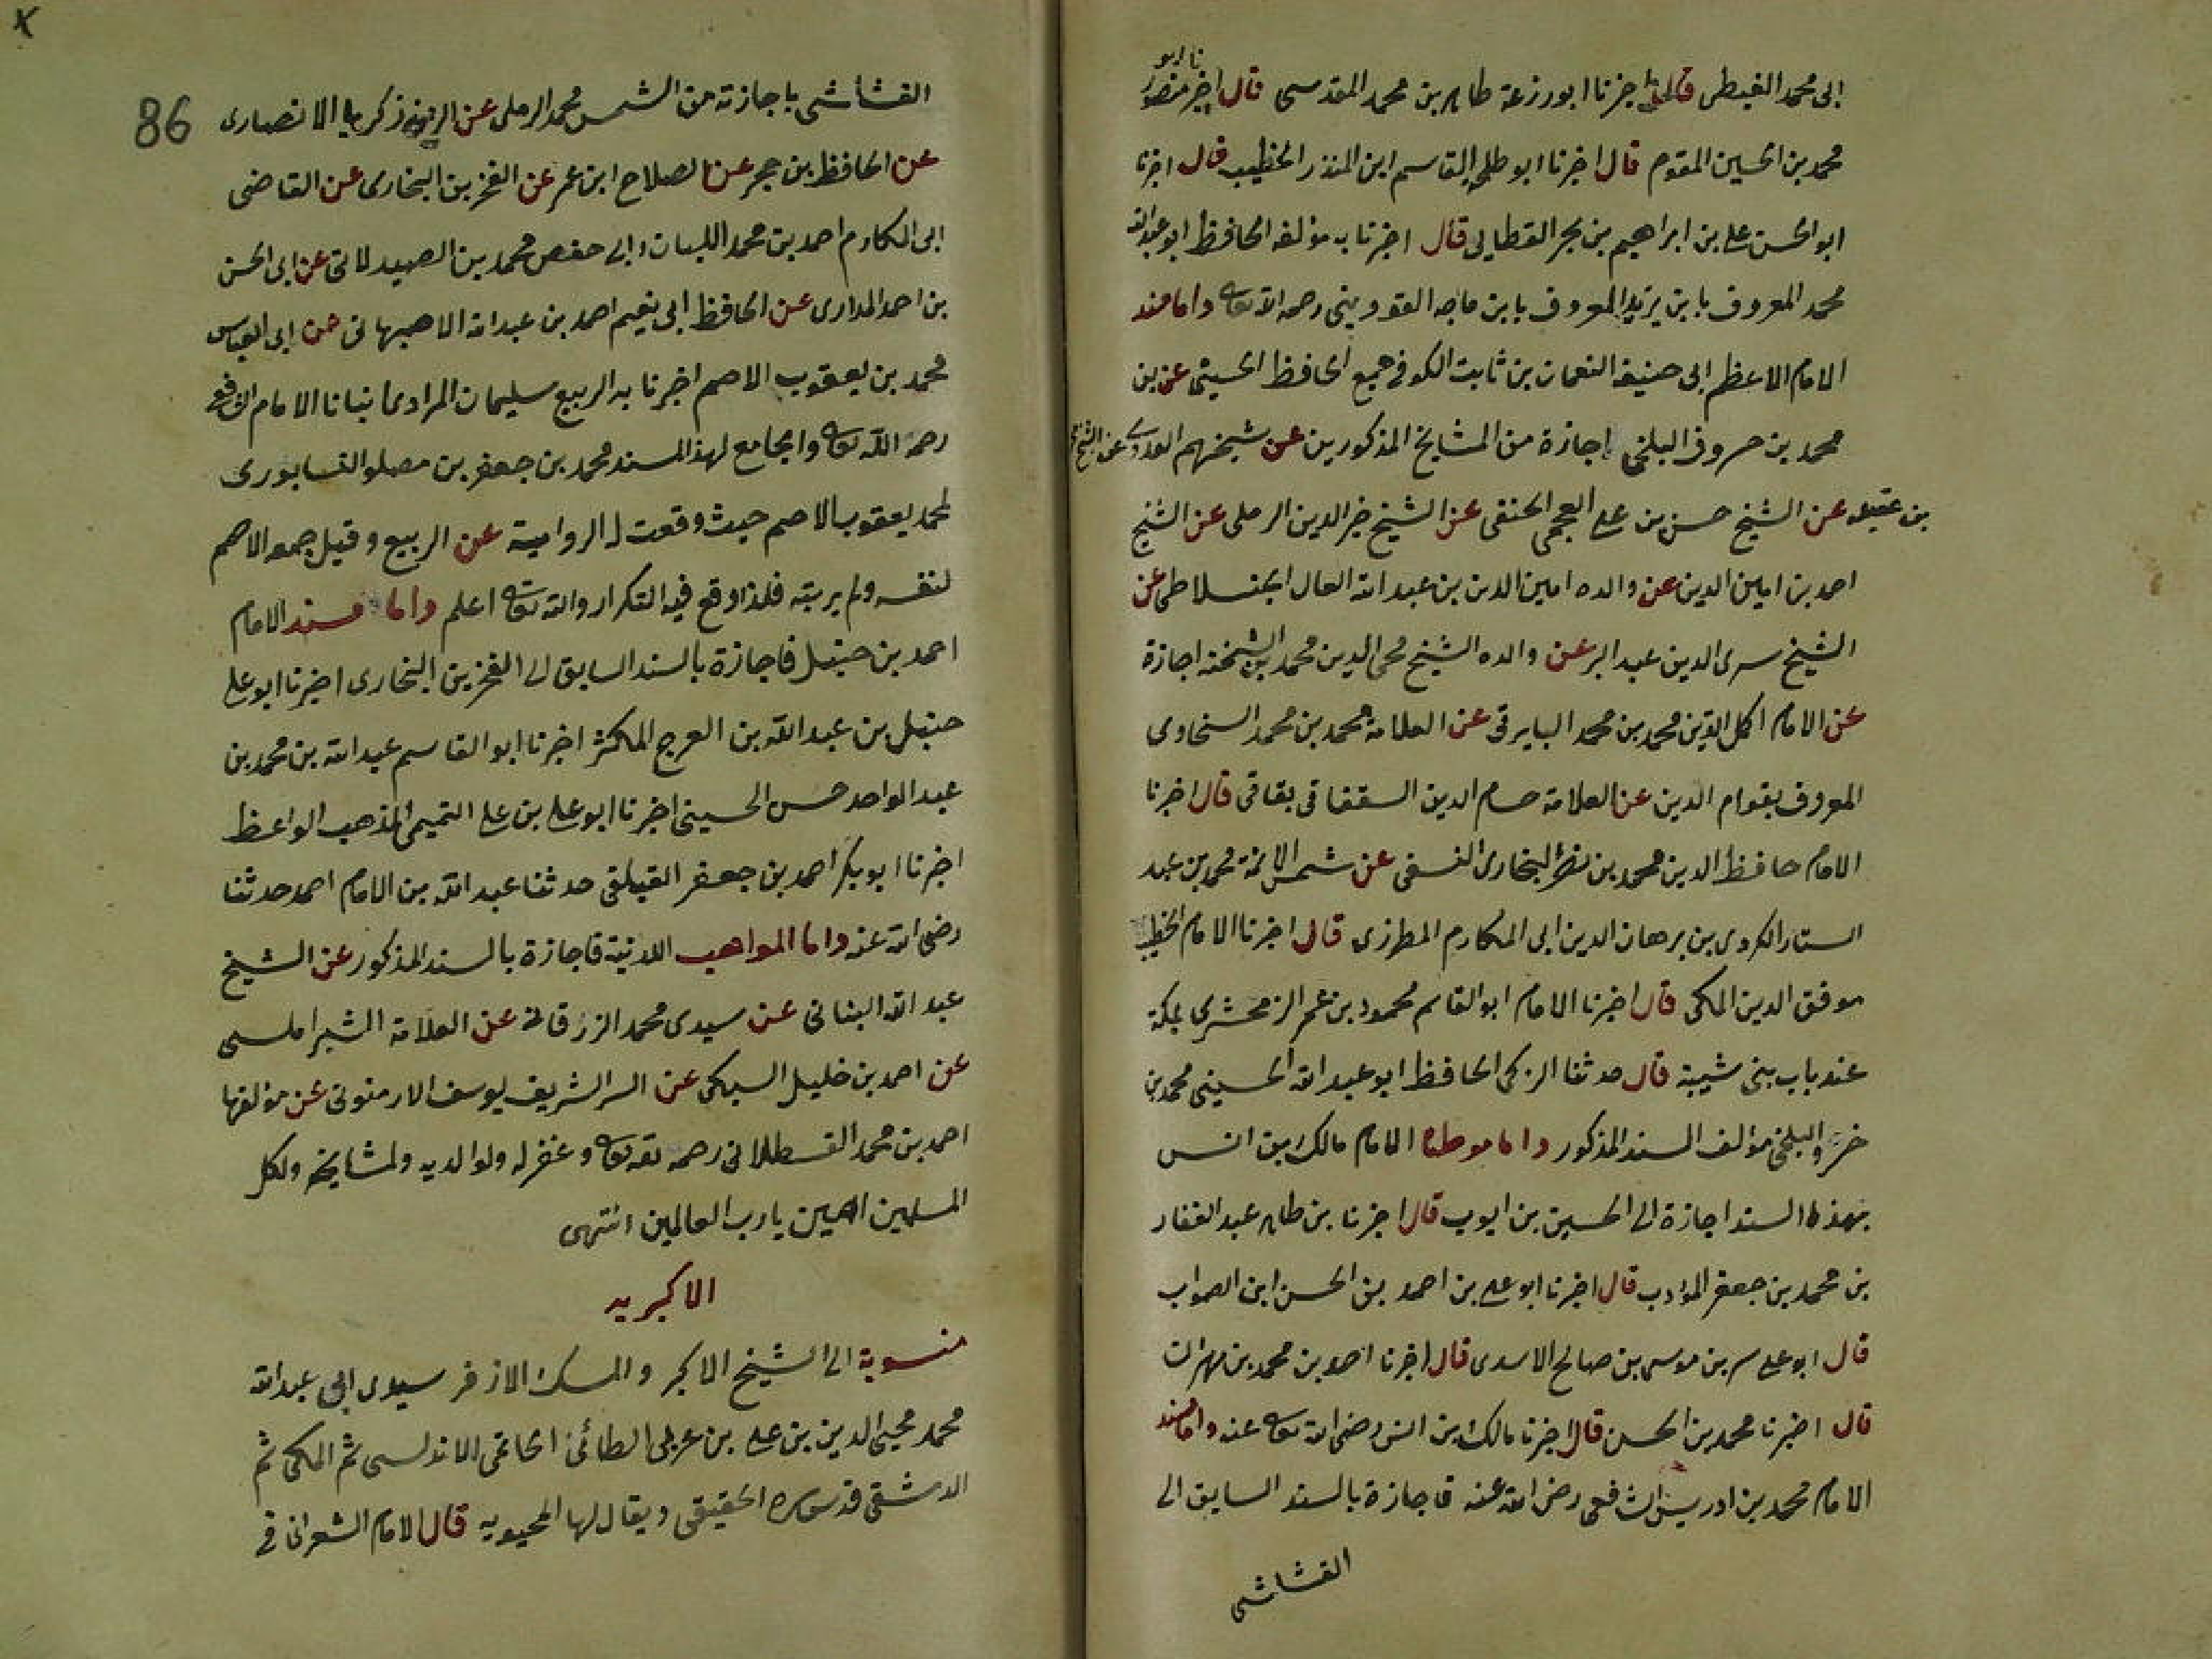 نا ابو
الى محمد الغيطى قال انا اخبرنا ابو زرعة طاهر بن محمد المقدسى قال اخبر منصور
محمد بن الحسين المقوم قال اخبرنا ابو طلحة القاسم ابن المنذر الخطيب قال اخبرنا
ابو الحسن على بن ابراهيم بن بحر القطايى قال اخبرنا به مؤلفه الحافظ ابو عبد الله
محمد المعروف بابن يزيد المعروف بابن ماجه القزوينى رحمه الله تعالى واما مسند
الامام الاعظم ابى حنيفة النعمان بن ثابت الكوفى جمع الحافظ الحسينى عن بن
محمد بن خسرو البلخى اجازة من المشايخ المذكورين عن شيخهم عن الشيخ
بن عقيله عن الشيخ حسن بن على العجمى الحنفى عن الشيخ خير الدين الرملى عن الشيخ
احمد بن امين الدين عن والده امين الدين بن عبد الله العال الجنلاطى عن
الشيخ سرى الدين عبد البر عن والده الشيخ محى الدين محمد بن الشحنه اجازة
عن الامام اكمل الدين محمد بن محمد البابرتى عن العلامة محمد بن محمد السنجاوى
المعروف بقوام الدين عن العلامة حسام الدين السقفاقى بقاقى قال اخبرنا
الامام حافظ الدين محمد بن نصر البخارى النسفى عن شمس الائمة محمد بن عبد
الستار الكردى بن برهان الدين ابى المكارم المطرزى قال اخبرنا الامام الخطيب
موفق الدين المكى قال اخبرنا الامام ابو القاسم محمود بن عمر الزمخشرى بمكة
عند باب بنى شيبة قال حدثنا الزكى الحافظ ابو عبد الله الحسينى محمد بن
خسرو البلخى مؤلف السند المذكور واما موطاء الامام مالك بن انس
بهذا السند اجازة الى الحسين بن ايوب قال اخبرنا بن طاهر عبد الغفار
بن محمد بن جعفر المؤدب قال اخبرنا ابو على بن احمد بن الحسن ابن الصواب
قال ابو على سر بن موسى بن صالح الاسدى قال اخبرنا احمد بن محمد بن مهران
قال اخبرنا محمد بن الحسن قال اخبرنا مالك بن انس رضى الله تعالى عنه واما مسند
الامام محمد بن ادريس الشافعى رضى الله عنه فاجازة بالسند السابق الى
القشاشى
86
القشاشى باجازته من الشمس محمد الرملى عن الزين زكريا الانصارى
عن الحافظ بن حجر عن الصلاح ابن عمر عن الفخر بن البخارى عن القاضى
ابى المكارم احمد بن محمد اللبان وابى حفص محمد بن الصيدلانى عن ابى الحسن
بن احمد المدارى عن الحافظ ابى نعيم احمد بن عبد الله الاصبهانى عن ابى العباس
محمد بن يعقوب الاصم اخبرنا به الربيع سليمان المرادى انبانا الامام الشافعى
رحمة الله تعالى والجامع لهذا المسند محمد بن جعفر بن مصلو النسابورى
لمحمد يعقوب الاصم حيث وقعت له الرواية عن الربيع وقيل جمعه الاصم
لنفسه ولم يرتبه فلذا وقع فيه التكرار والله تعالى اعلم واما مسند الامام
احمد بن حنبل فاجازة بالسند السابق الى الفخر بن البخارى اخبرنا ابو على
حنبل بن عبد الله بن الفرج المكثر اخبرنا ابو القاسم عبد الله بن محمد بن
عبد الواحد حسن الحسينى اخبرنا ابو على بن على التميمى المذهب الواعظ
اخبرنا ابو بكر احمد بن جعفر القيلقى حدثنا عبد الله بن الامام احمد حدثنا
رضى الله عنه واما المواهب اللدنية فاجازة بالسند المذكور عن الشيخ
عبد الله البنانى عن سيدى محمد الزرقانى عن العلامة الشبراملسى
عن احمد بن خليل السبكى عن السر الشريف يوسف الارمنونى عن مؤلفها
احمد بن محمد القسطلانى رحمه الله تعالى وغفر له ولوالديه ولمشايخه ولكل
المسلمين امين يا رب العالمين انتهى
الاكبريه
منسوبة الى الشيخ الاكبر والمسك الاذفر سيدى ابى عبد الله
محمد محيى الدين بن على بن عربى الطائى الحاتمى الاندلسى ثم المكى ثم
الدمشقى قدس سره الحقيقى ويقال لها المحيويه قال الامام الشعرانى فى